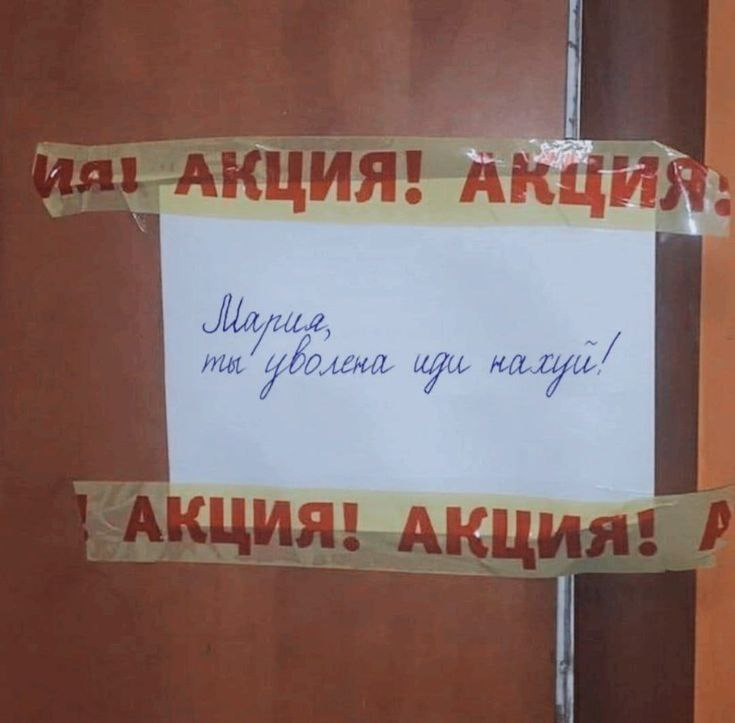 ия! АКЦИЯ! АКЦИЯ!
Мария,
ты уволена иди нахуй!
! АКЦИЯ! АКЦИЯ! А